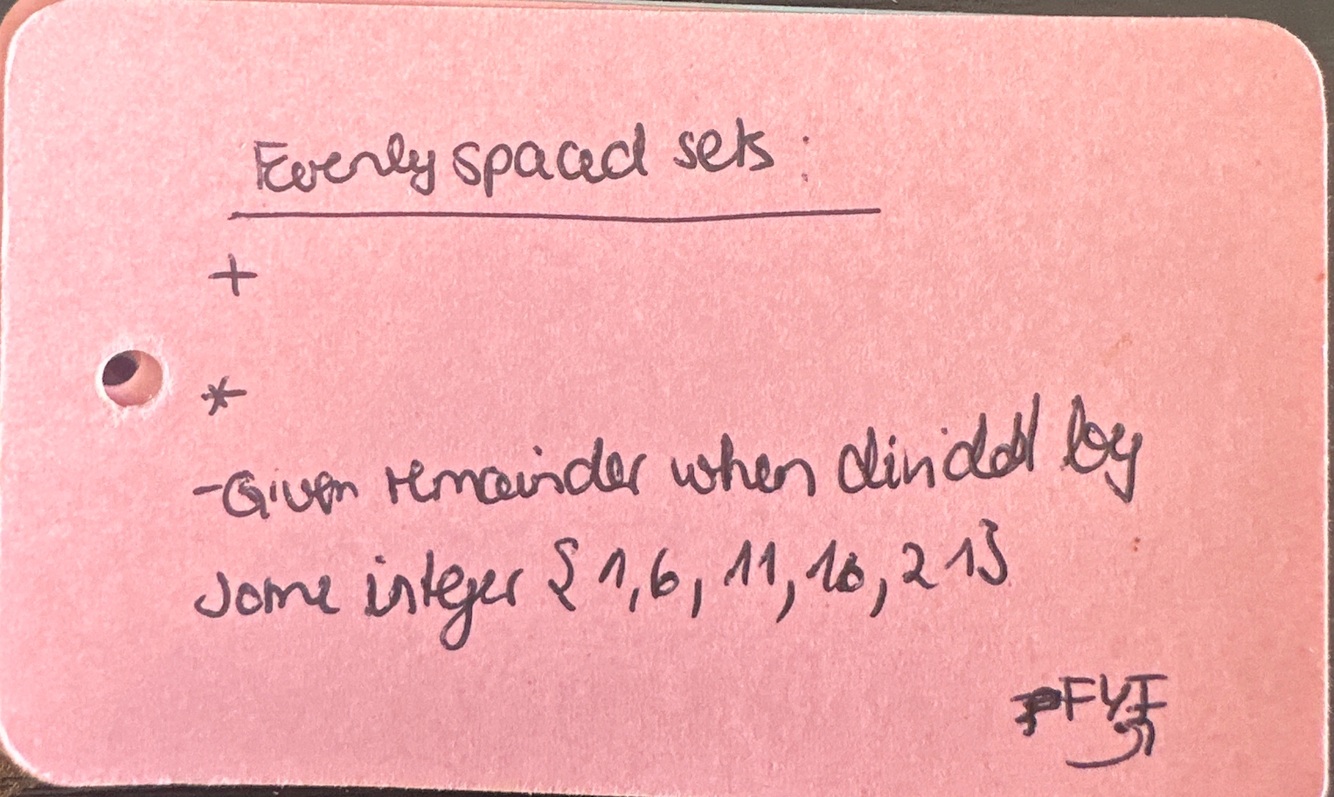 Evenly spaced sets :
+
*
- Given remainder when divided by
some integer { 1, 6, 11, 16, 21}
FYI